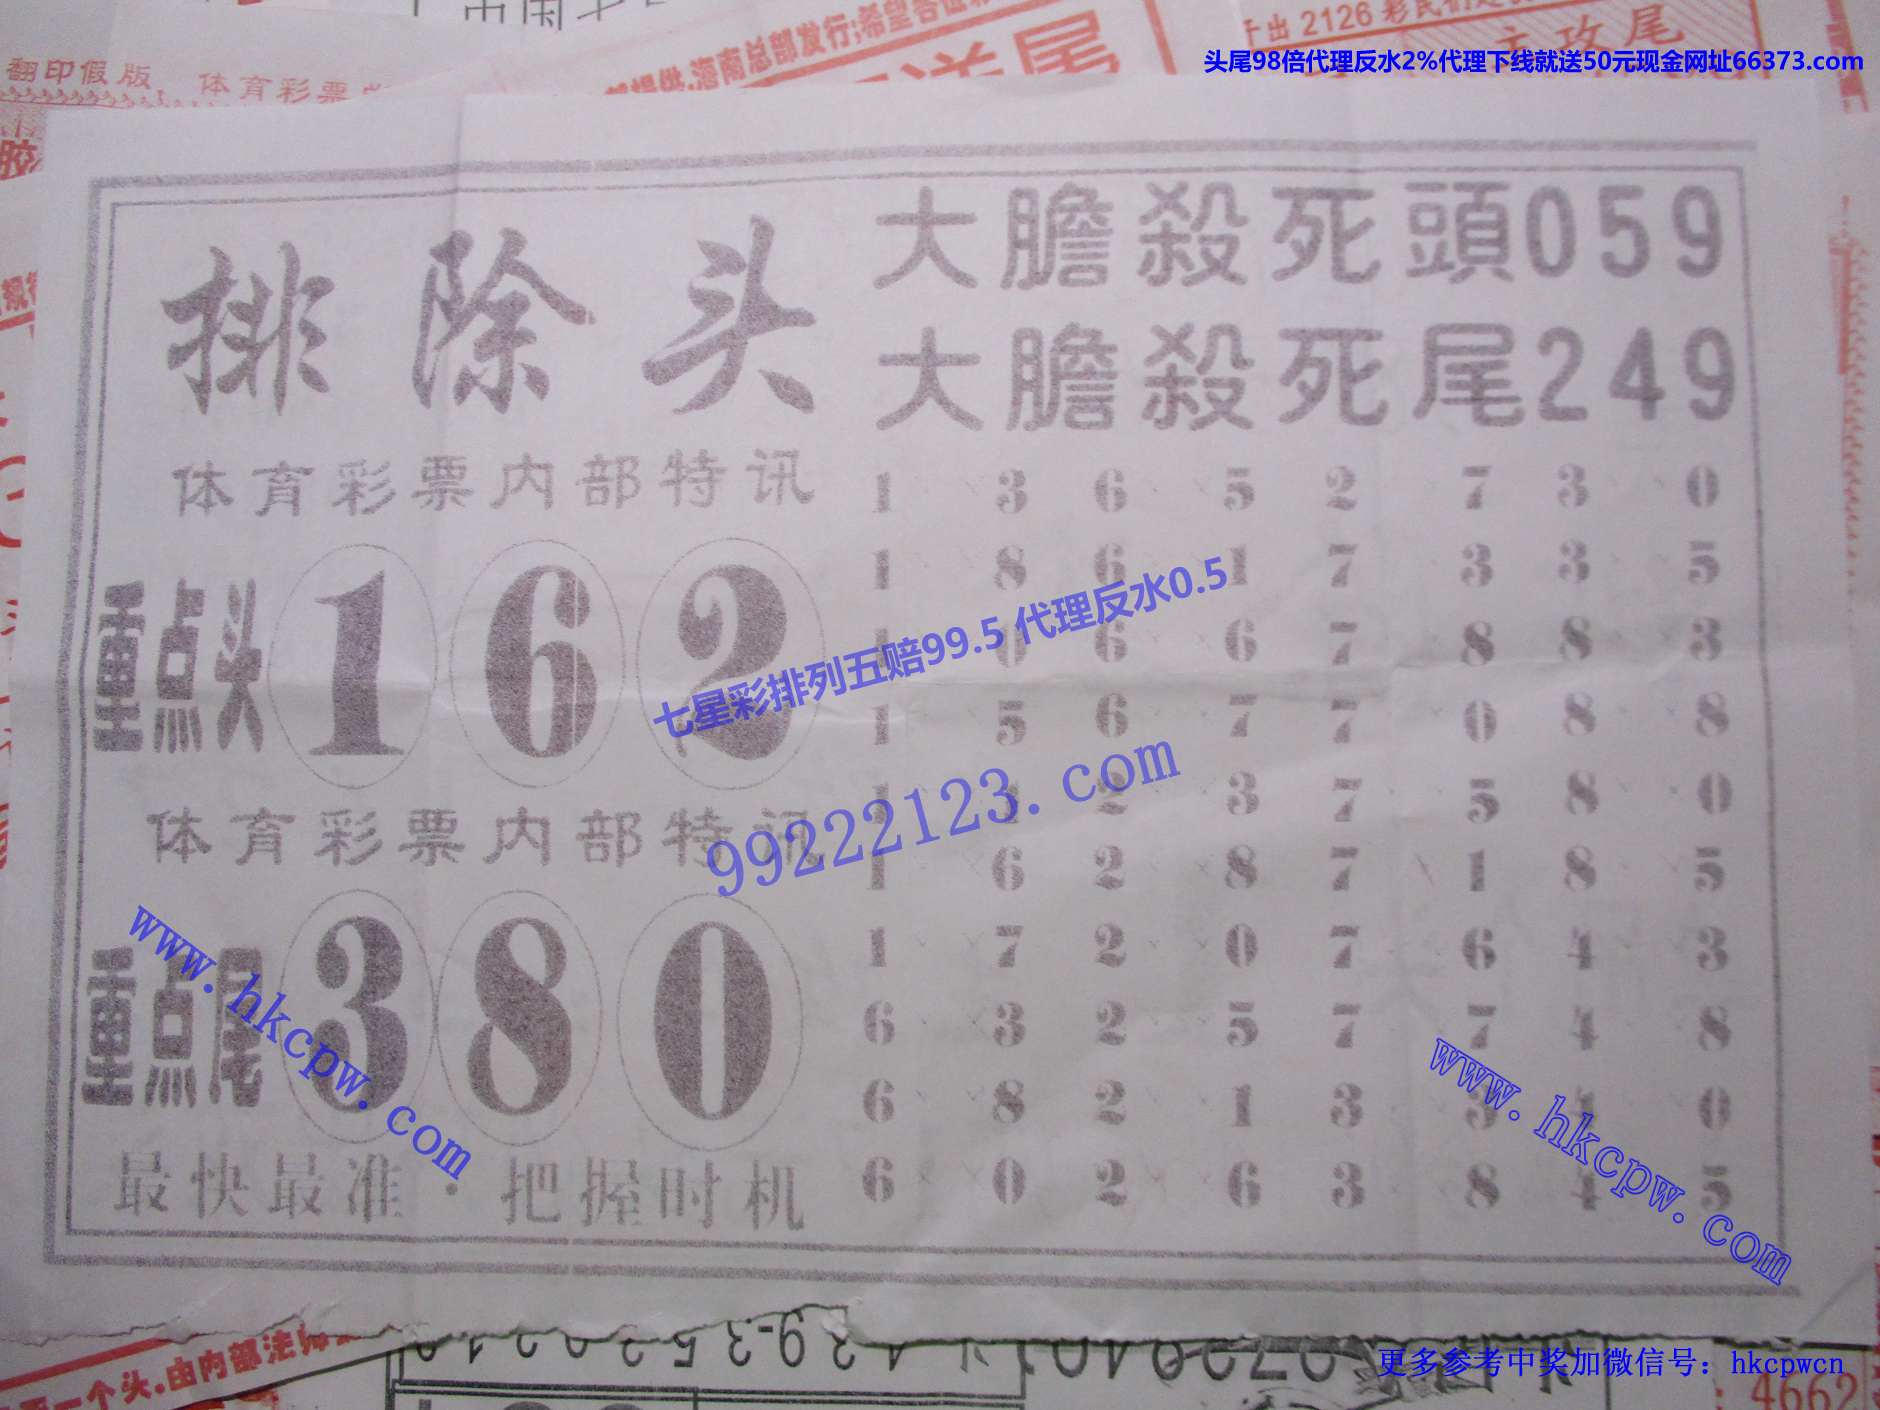 头尾98倍代理反水2%代理下线就送50元现金网址66373.com
翻印假版 体育彩票
海南总部发行;希望各位
出 2126 彩民
主攻尾
排除头
大膽殺死頭059
大膽殺死尾249
体育彩票内部特讯
重点头 1 6 2
体育彩票内部特讯
重点尾 3 8 0
最快最准·把握时机
1 3 6 5 2 7 3 0
1 8 6 1 7 3 3 5
1 0 6 6 7 8 8 3
1 5 6 7 7 0 8 8
1 1 2 3 7 5 8 0
1 6 2 8 7 1 8 5
1 7 2 0 7 6 4 3
6 3 2 5 7 7 4 8
6 8 2 1 3 3 4 0
6 0 2 6 3 8 4 5
七星彩排列五赔99.5 代理反水0.5
99222123.com
www.hkcpw.com
www.hkcpw.com
一个头.由内部法师
更多参考中奖加微信号：hkcpwcn
4662